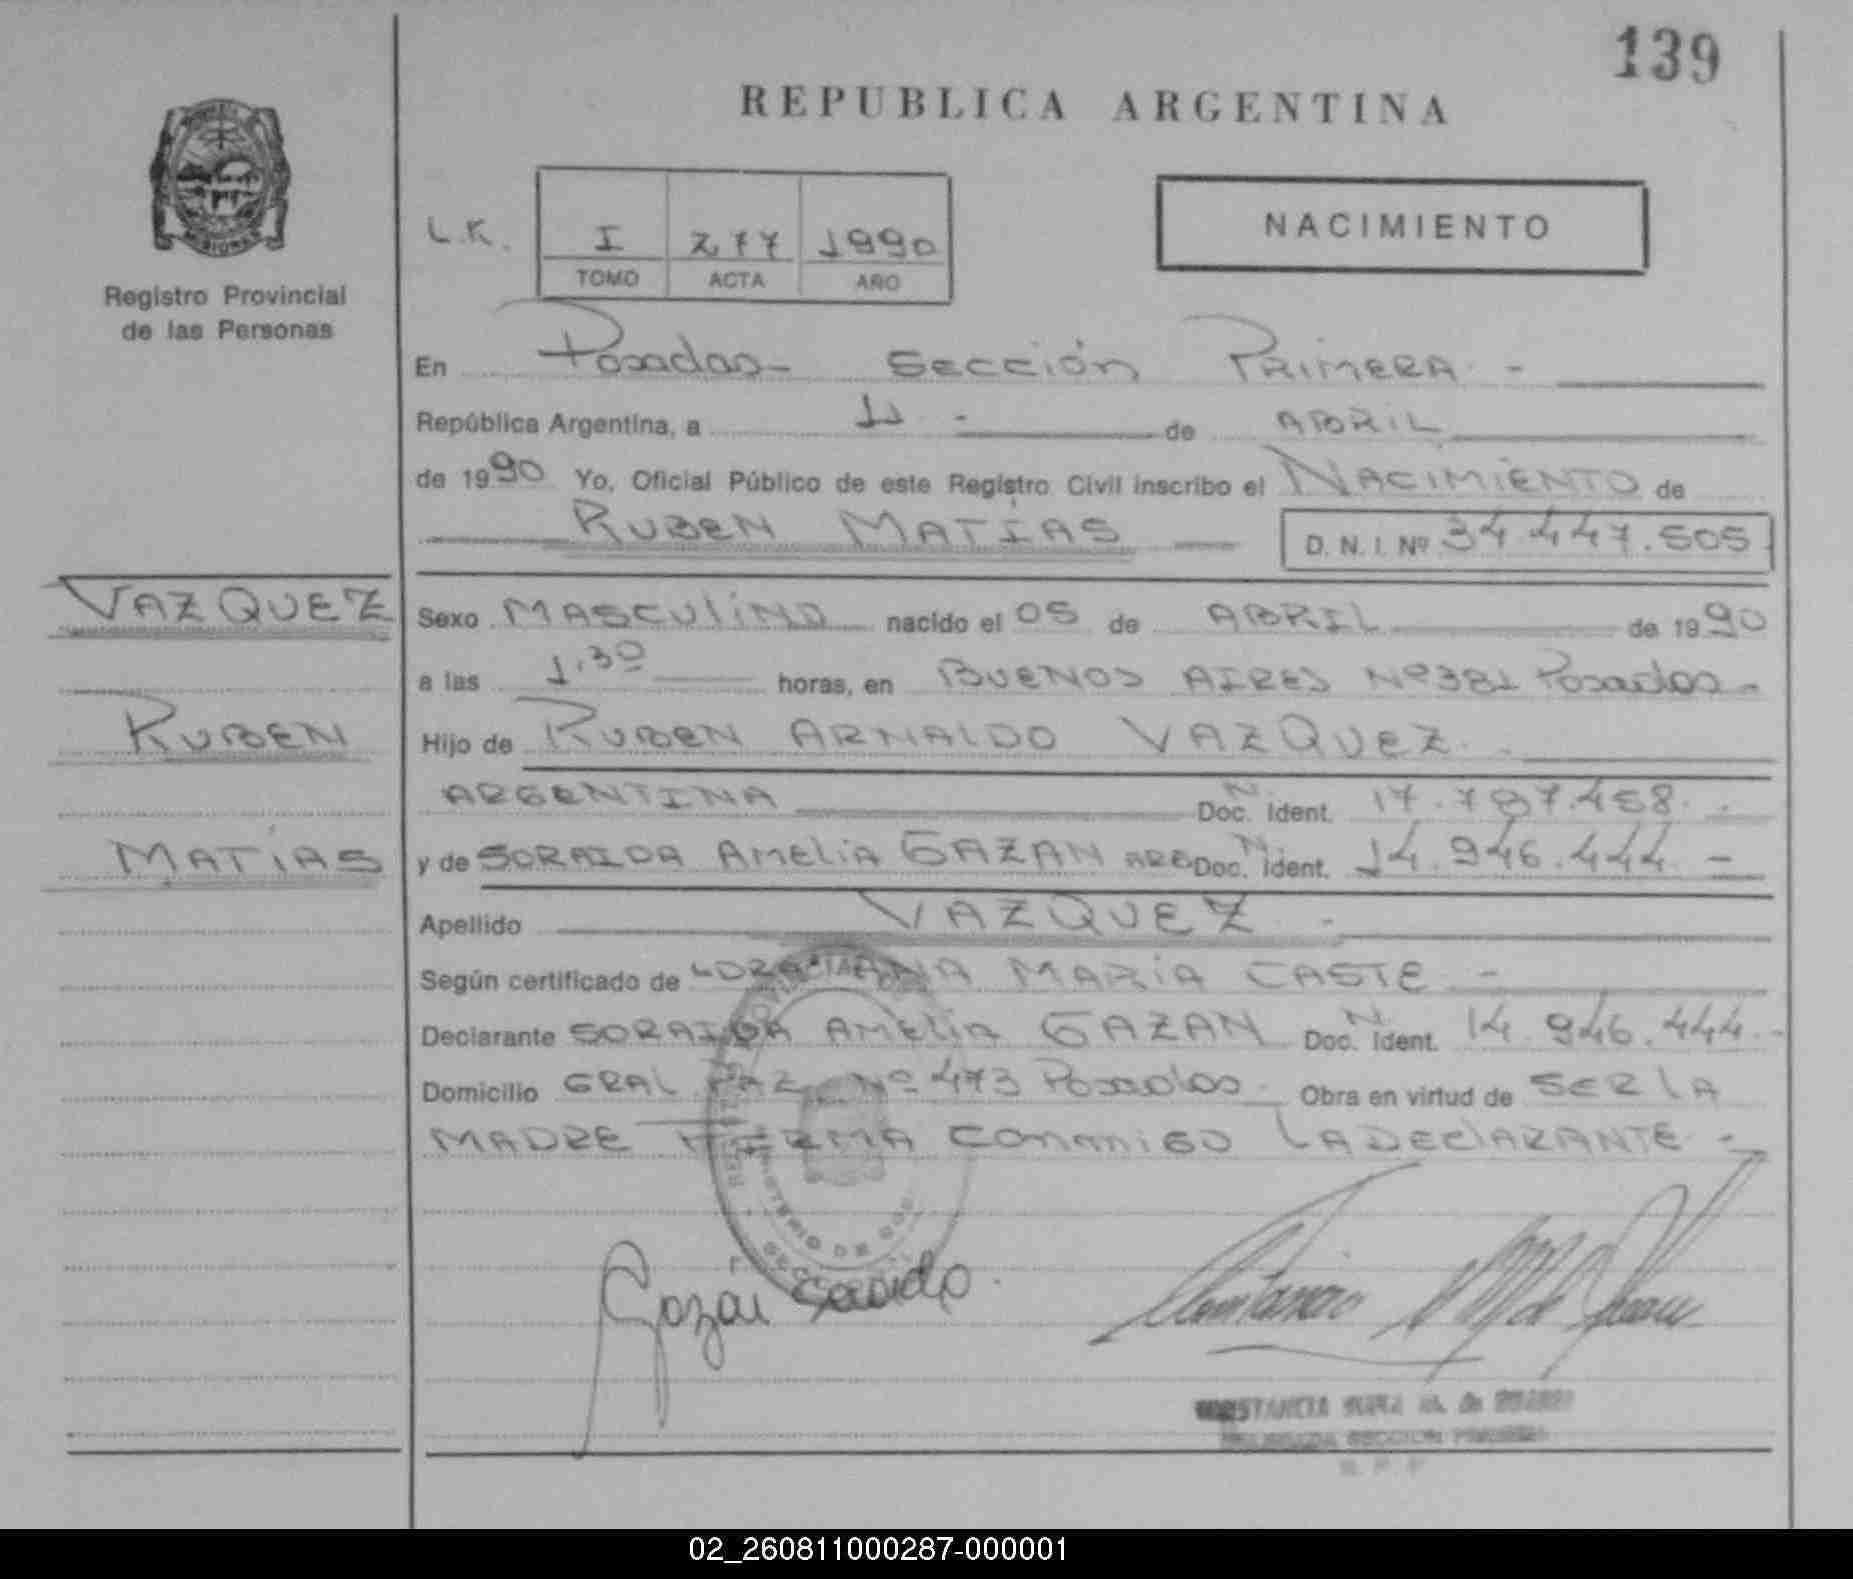 139
REPUBLICA ARGENTINA
MISIONES
Registro Provincial
de las Personas
L.K.
I 277 1990
TOMO ACTA AÑO
NACIMIENTO
En Posadas- Sección Primera. -
República Argentina, a 11 - de ABRIL
de 1990 Yo, Oficial Público de este Registro Civil inscribo el NACIMIENTO de
RUBEN MATÍAS
D. N. I. Nº 34.447.505
VAZQUEZ
RUBEN
MATÍAS
Sexo MASCULINO nacido el 05 de ABRIL de 1990
a las 1.30 horas, en BUENOS AIRES Nº 381 Posadas-
Hijo de RUBEN ARNALDO VAZQUEZ.
ARGENTINA Doc. N. Ident. 17.787.458.
y de SORAIDA AMELIA GAZAN ARG Doc. N. Ident. 14.946.444. -
Apellido VAZQUEZ. -
Según certificado de ANA MARIA CASTE -
Declarante SORAIDA AMELIA GAZAN Doc. N. Ident. 14.946.444.-
Domicilio GRAL PAZ Nº 473 Posadas. Obra en virtud de SER LA
MADRE FIRMA CONMIGO LA DECLARANTE. -
Gazán
SECCION
R. P. P.
02_260811000287-000001